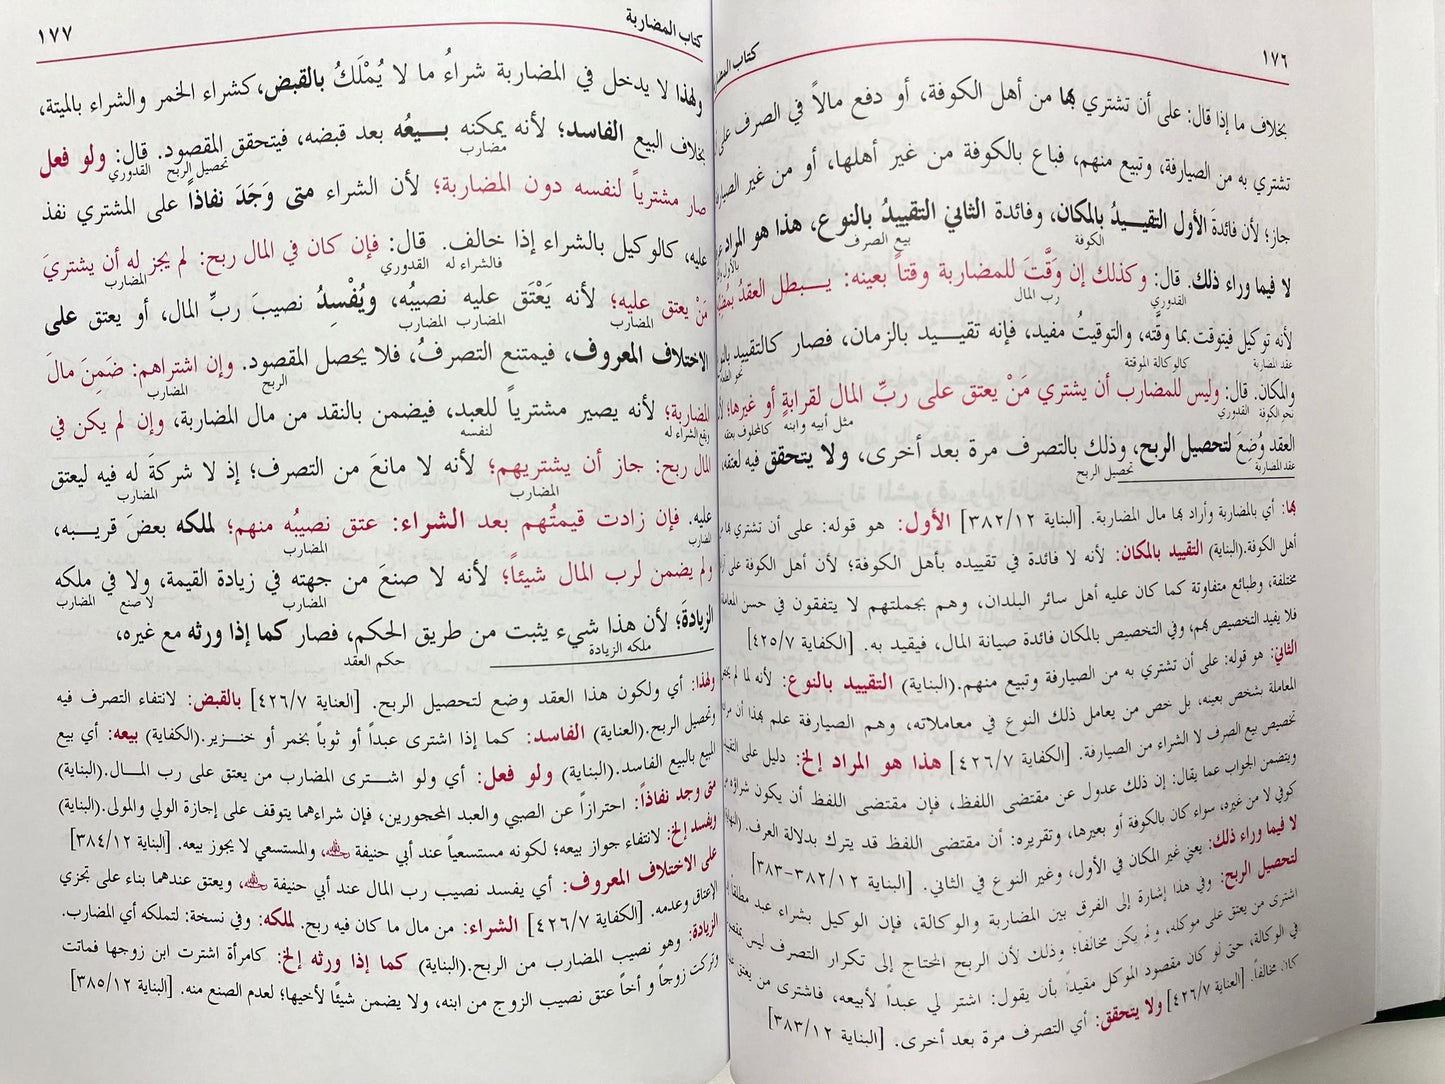 ١٧٦
كتاب المضاربة
بخلاف ما إذا قال: على أن تشتري بها من أهل الكوفة، أو دفع مالاً في الصرف على
تشتري به من الصيارفة، وتبيع منهم، فباع بالكوفة من غير أهلها، أو من غير الصيارفة
جاز؛ لأن فائدةَ الأول التقييدُ بالمكان، وفائدة الثاني التقييدُ بالنوع، هذا هو المراد
الكوفة بيع الصرف
لا فيما وراء ذلك. قال: وكذلك إن وَقَّتَ للمضاربة وقتاً بعينه: يبطل العقدُ بمُضيّه
القدوري رب المال
لأنه توكيل فيتوقت بما وقَّته، والتوقيتُ مفيد، فإنه تقييد بالزمان، فصار كالتقييد
عقد المضاربة كالوكالة المؤقتة
والمكان. قال: وليس للمضارب أن يشتري مَنْ يعتق على ربِّ المال لقرابةٍ أو غيرها؛
نحو الكوفة القدوري مثل أبيه وابنه كالمحلوف بعتقه
العقد وُضِعَ لتحصيل الربح، وذلك بالتصرف مرة بعد أخرى، ولا يتحقق فيه لعتقه،
عقد المضاربة تحصيل الربح
بها: أي بالمضاربة وأراد بها مال المضاربة. [البناية ٣٨٢/١٢] الأول: هو قوله: على أن تشتري بها من
أهل الكوفة.(البناية) التقييد بالمكان: لأنه لا فائدة في تقييده بأهل الكوفة؛ لأن أهل الكوفة على
مختلفة، وطبائع متفاوتة كما كان عليه أهل سائر البلدان، وهم بجملتهم لا يتفقون في حسن المعاملة
فلا يفيد التخصيص بهم، وفي التخصيص بالمكان فائدة صيانة المال، فيقيد به. [الكفاية ٤٢٥/٧]
الثاني: هو قوله: على أن تشتري به من الصيارفة وتبيع منهم.(البناية) التقييد بالنوع: لأنه لما لم
المعاملة بشخص بعينه، بل خص من يعامل ذلك النوع في معاملاته، وهم الصيارفة علم بهذا أن مراده
تخصيص بيع الصرف لا الشراء من الصيارفة. [الكفاية ٤٢٦/٧] هذا هو المراد إلخ: دليل على
ويتضمن الجواب عما يقال: إن ذلك عدول عن مقتضى اللفظ، فإن مقتضى اللفظ أن يكون شراؤه من
كوفي لا من غيره، سواء كان بالكوفة أو بغيرها، وتقريره: أن مقتضى اللفظ قد يترك بدلالة العرف.
لا فيما وراء ذلك: يعني غير المكان في الأول، وغير النوع في الثاني. [البناية ٣٨٢/١٢-٣٨٣]
لتحصيل الربح: وفي هذا إشارة إلى الفرق بين المضاربة والوكالة، فإن الوكيل بشراء عبد مطلقاً
اشترى من يعتق على موكله، ولم يكن مخالفا؛ وذلك لأن الربح المحتاج إلى تكرار التصرف ليس
في الوكالة، حتى لو كان مقصود الموكل مفيداً بأن يقول: اشتر لي عبداً لأبيعه، فاشترى من يعتق
كان مخالفاً. [العناية ٤٢٦/٧] ولا يتحقق: أي التصرف مرة بعد أخرى. [البناية ٣٨٣/١٢]
كتاب المضاربة
١٧٧
ولهذا لا يدخل في المضاربة شراءُ ما لا يُمْلَكُ بالقبض، كشراء الخمر والشراء بالميتة،
بخلاف البيع الفاسد؛ لأنه يمكنه بيعُه بعد قبضه، فيتحقق المقصود. قال: ولو فعل
مضارب تحصيل الربح القدوري
صار مشترياً لنفسه دون المضاربة؛ لأن الشراء متى وَجَدَ نفاذاً على المشتري نفذ
عليه، كالوكيل بالشراء إذا خالف. قال: فإن كان في المال ربح: لم يجز له أن يشتريَ
فالشراء له القدوري المضارب
مَنْ يعتق عليه؛ لأنه يَعْتَق عليه نصيبُه، ويُفْسِدُ نصيبَ ربِّ المال، أو يعتق على
المضارب المضارب المضارب
الاختلاف المعروف، فيمتنع التصرفُ، فلا يحصل المقصود. وإن اشتراهم: ضَمِنَ مالَ
الربح المضارب
المضاربة؛ لأنه يصير مشترياً للعبد، فيضمن بالنقد من مال المضاربة، وإن لم يكن في
ويقع الشراء له لنفسه
المال ربح: جاز أن يشتريهم؛ لأنه لا مانعَ من التصرف؛ إذ لا شركةَ له فيه ليعتق
المضارب المضارب
عليه. فإن زادت قيمتُهم بعد الشراء: عتق نصيبُه منهم؛ لملكه بعضَ قريبه،
المضارب المضارب
ولم يضمن لرب المال شيئًا؛ لأنه لا صنعَ من جهته في زيادة القيمة، ولا في ملكه
المضارب لا صنع المضارب
الزيادةَ؛ لأن هذا شيء يثبت من طريق الحكم، فصار كما إذا ورثه مع غيره،
ملكه الزيادة حكم العقد
ولهذا: أي ولكون هذا العقد وضع لتحصيل الربح. [العناية ٤٢٦/٧] بالقبض: لانتفاء التصرف فيه
وتحصيل الربح.(العناية) الفاسد: كما إذا اشترى عبداً أو ثوباً بخمر أو خنزير.(الكفاية) بيعه: أي بيع
المبيع بالبيع الفاسد.(البناية) ولو فعل: أي ولو اشترى المضارب من يعتق على رب المال.(البناية)
متى وجد نفاذاً: احترازاً عن الصبي والعبد المحجورين، فإن شراءهما يتوقف على إجازة الولي والمولى.(البناية)
ويفسد إلخ: لانتفاء جواز بيعه؛ لكونه مستسعياً عند أبي حنيفة رحمه الله، والمستسعي لا يجوز بيعه. [البناية ٣٨٤/١٢]
على الاختلاف المعروف: أي يفسد نصيب رب المال عند أبي حنيفة رحمه الله، ويعتق عندهما بناء على تجزي
الإعتاق وعدمه. [الكفاية ٤٢٦/٧] الشراء: من مال ما كان فيه ربح. لملكه: وفي نسخة: لتملكه أي المضارب.
الزيادة: وهو نصيب المضارب من الربح.(البناية) كما إذا ورثه إلخ: كامرأة اشترت ابن زوجها فماتت
وتركت زوجاً و أخاً عتق نصيب الزوج من ابنه، ولا يضمن شيئًا لأخيها؛ لعدم الصنع منه. [البناية ٣٨٥/١٢]